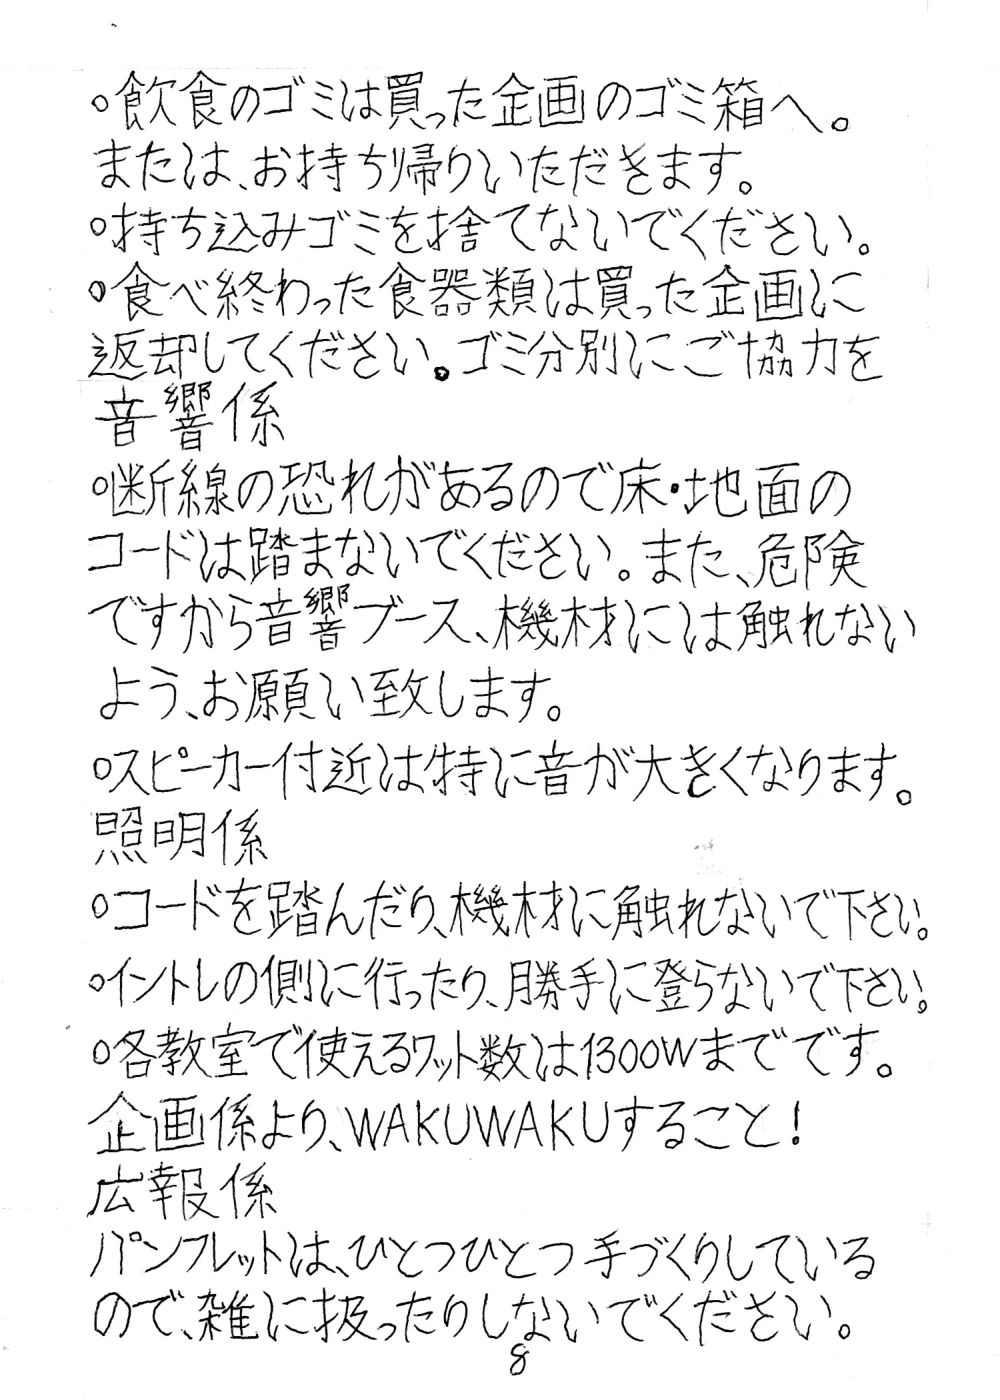 ○飲食のゴミは買った企画のゴミ箱へ。
または、お持ち帰りいただきます。
○持ち込みゴミを捨てないでください。
○食べ終わった食器類は買った企画に
返却してください。ゴミ分別にご協力を
音響係
○断線の恐れがあるので床・地面の
コードは踏まないでください。また、危険
ですから音響ブース、機材には触れない
よう、お願い致します。
○スピーカー付近は特に音が大きくなります。
照明係
○コードを踏んだり、機材に触れないで下さい。
○イントレの側に行ったり、勝手に登らないで下さい。
○各教室で使えるワット数は1300Wまでです。
企画係より、WAKUWAKUすること!
広報係
パンフレットは、ひとつひとつ手づくりしている
ので、雑に扱ったりしないでください。
8